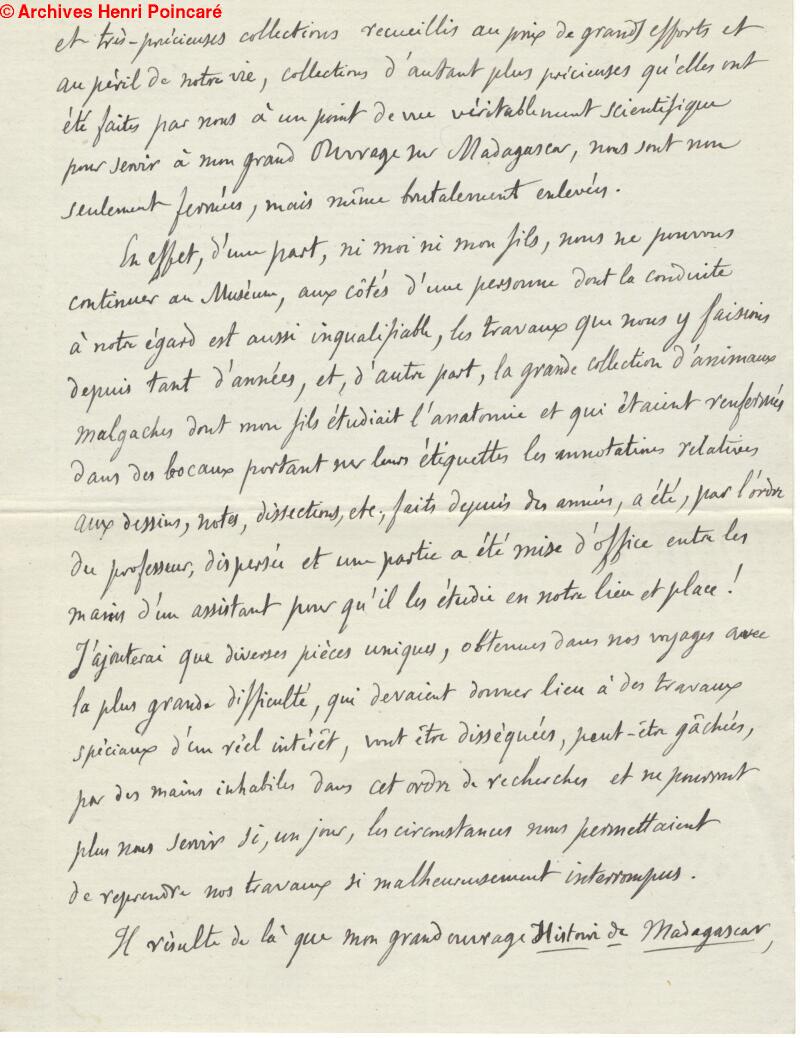 © Archives Henri Poincaré
et très-précieuses collections recueillis au prix de grands efforts et
au péril de notre vie, collections d'autant plus précieuses qu'elles ont
été faites par nous à un point de vue véritablement scientifique
pour servir à mon grand Ouvrage sur Madagascar, nous sont non
seulement fermées, mais même brutalement enlevées.
En effet, d'une part, ni moi ni mon fils, nous ne pouvons
continuer au Muséum, aux côtés d'une personne dont la conduite
à notre égard est aussi inqualifiable, les travaux que nous y faisions
depuis tant d'années, et, d'autre part, la grande collection d'animaux
malgaches dont mon fils étudiait l'anatomie et qui étaient renfermés
dans des bocaux portant sur leurs étiquettes les annotations relatives
aux dessins, notes, dissections, etc., faits depuis des années, a été, par l'ordre
du professeur, dispersée et une partie a été mise d'office entre les
mains d'un assistant pour qu'il les étudie en notre lieu et place !
J'ajouterai que diverses pièces uniques, obtenues dans nos voyages avec
la plus grande difficulté, qui devaient donner lieu à des travaux
spéciaux d'un réel intérêt, vont être disséquées, peut-être gâchées,
par des mains inhabiles dans cet ordre de recherches et ne pourront
plus nous servir si, un jour, les circonstances nous permettaient
de reprendre nos travaux si malheureusement interrompus.
Il résulte de là que mon grand ouvrage Histoire de Madagascar,